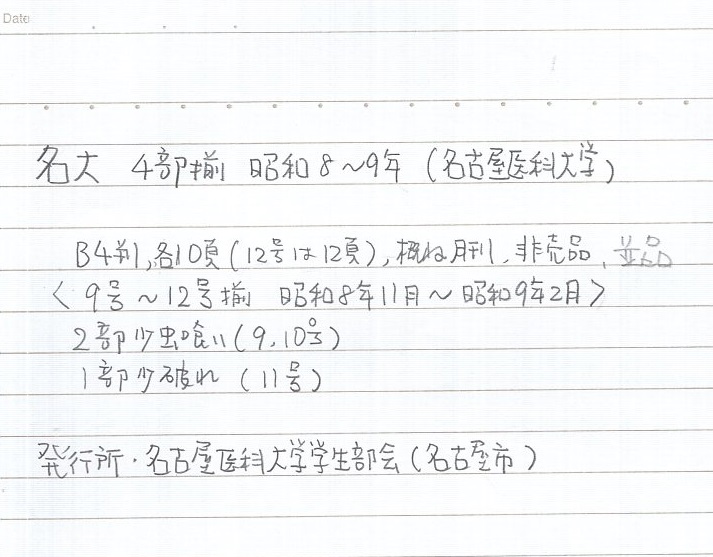 Date
名大 4部揃 昭和8~9年 (名古屋医科大学)
B4判,各10頁(12号は12頁),概ね月刊,非売品、並品
<9号~12号揃 昭和8年11月~昭和9年2月>
2部少虫喰い(9,10号)
1部少破れ (11号)
発行所・名古屋医科大学学生部会(名古屋市)